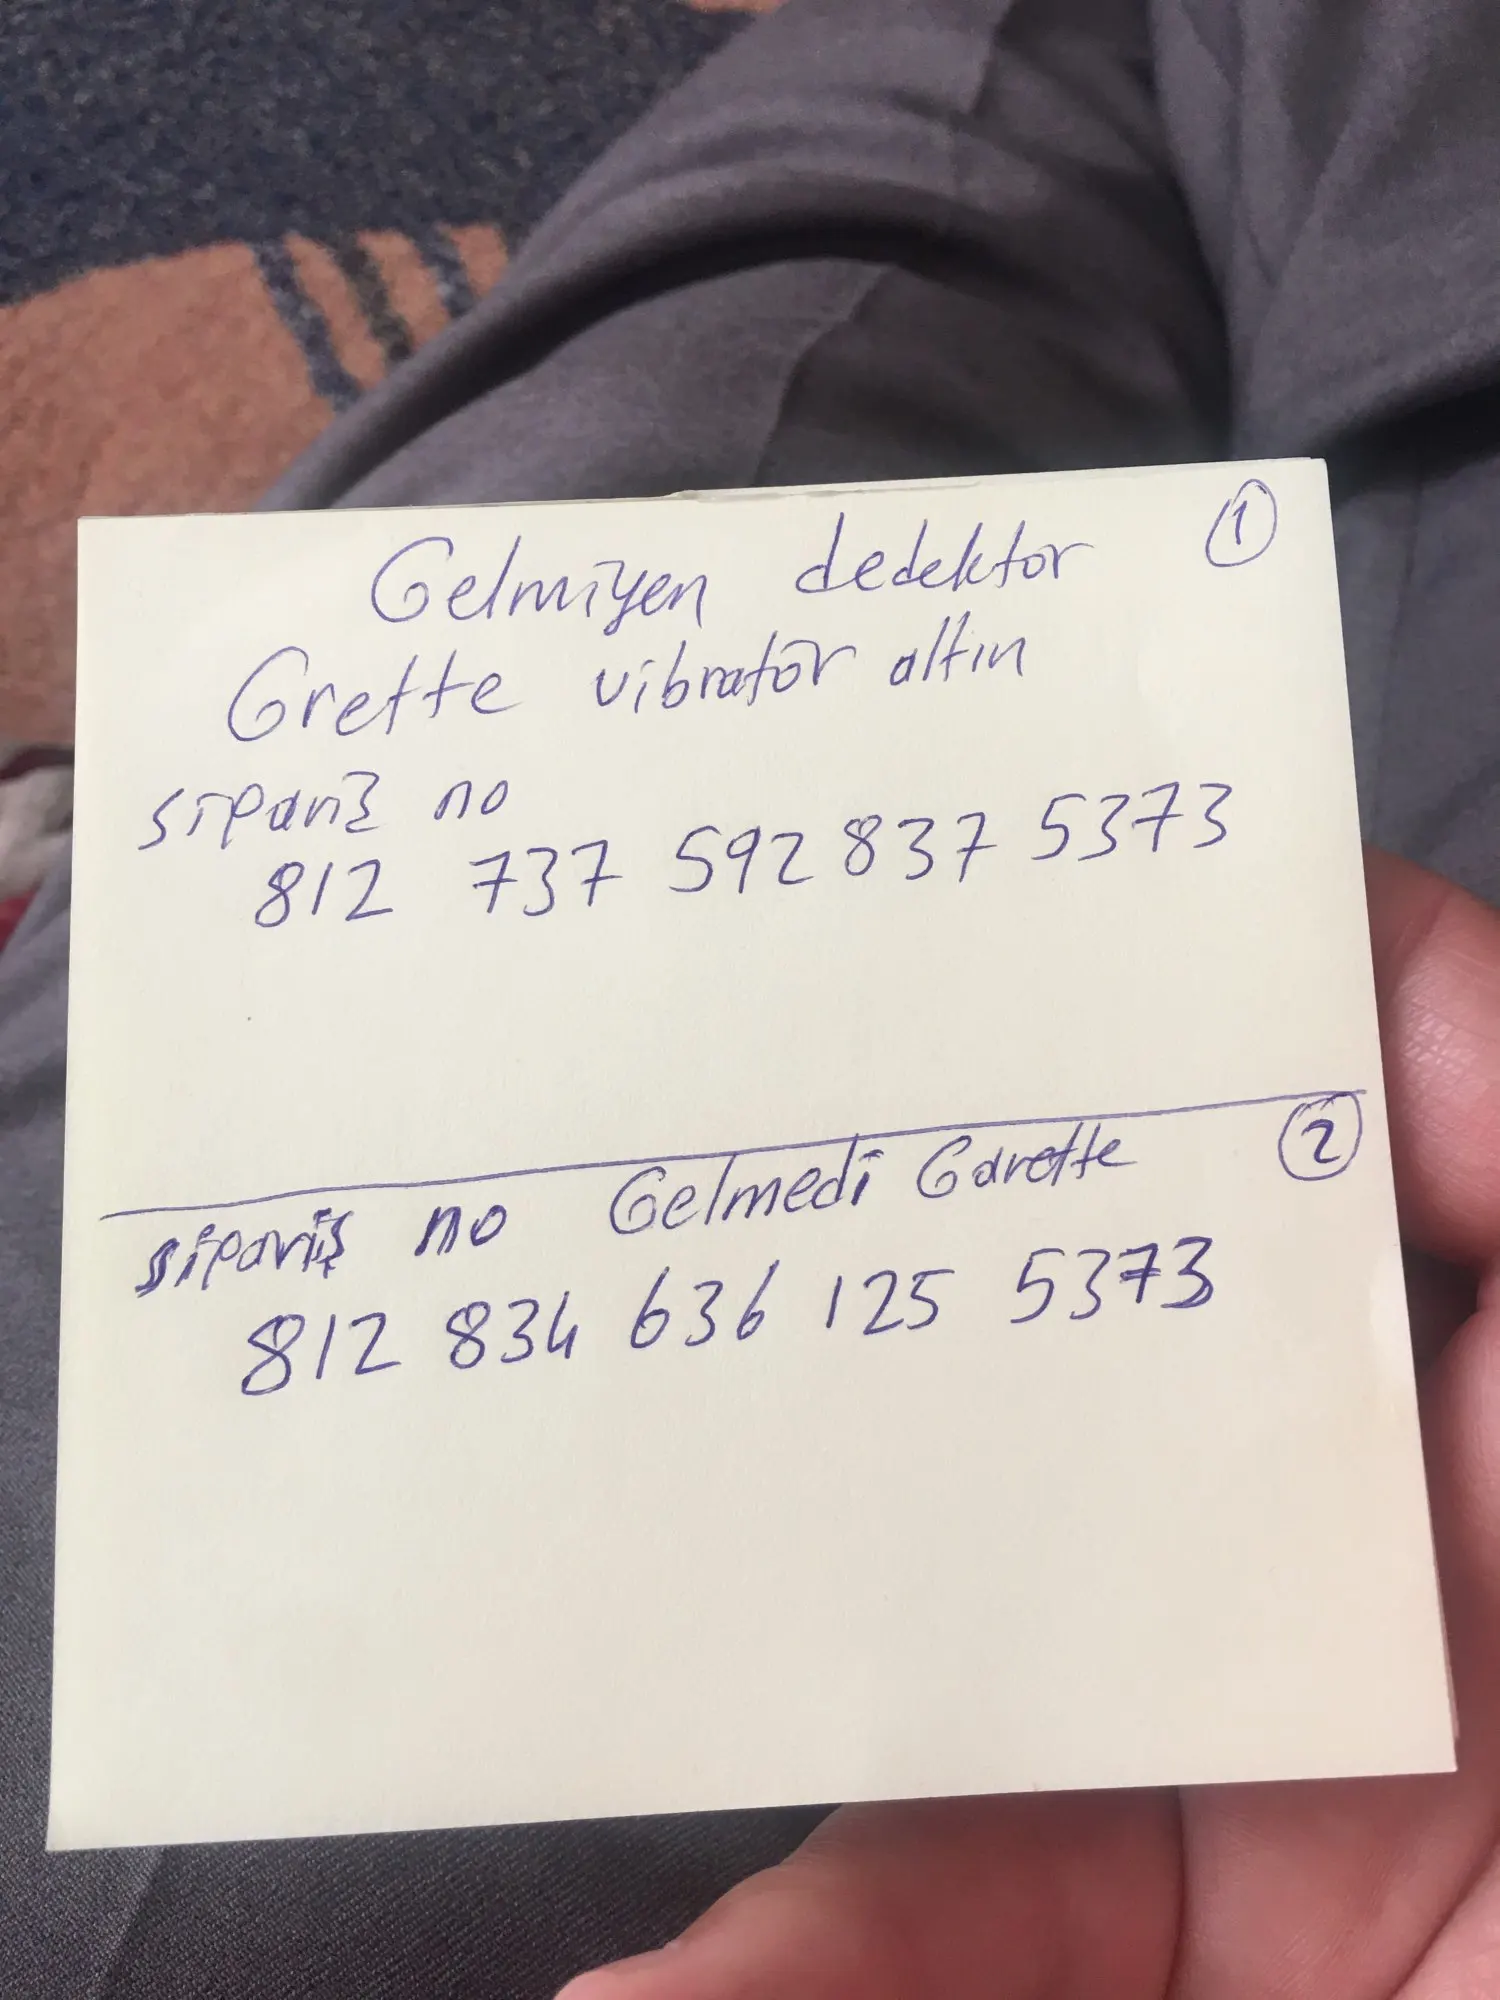 Gelmiyen dedektor 1
Grette vibratör altın
sipariş no
812 737 592 837 5373
2
sipariş no Gelmedi Garette
812 834 636 125 5373